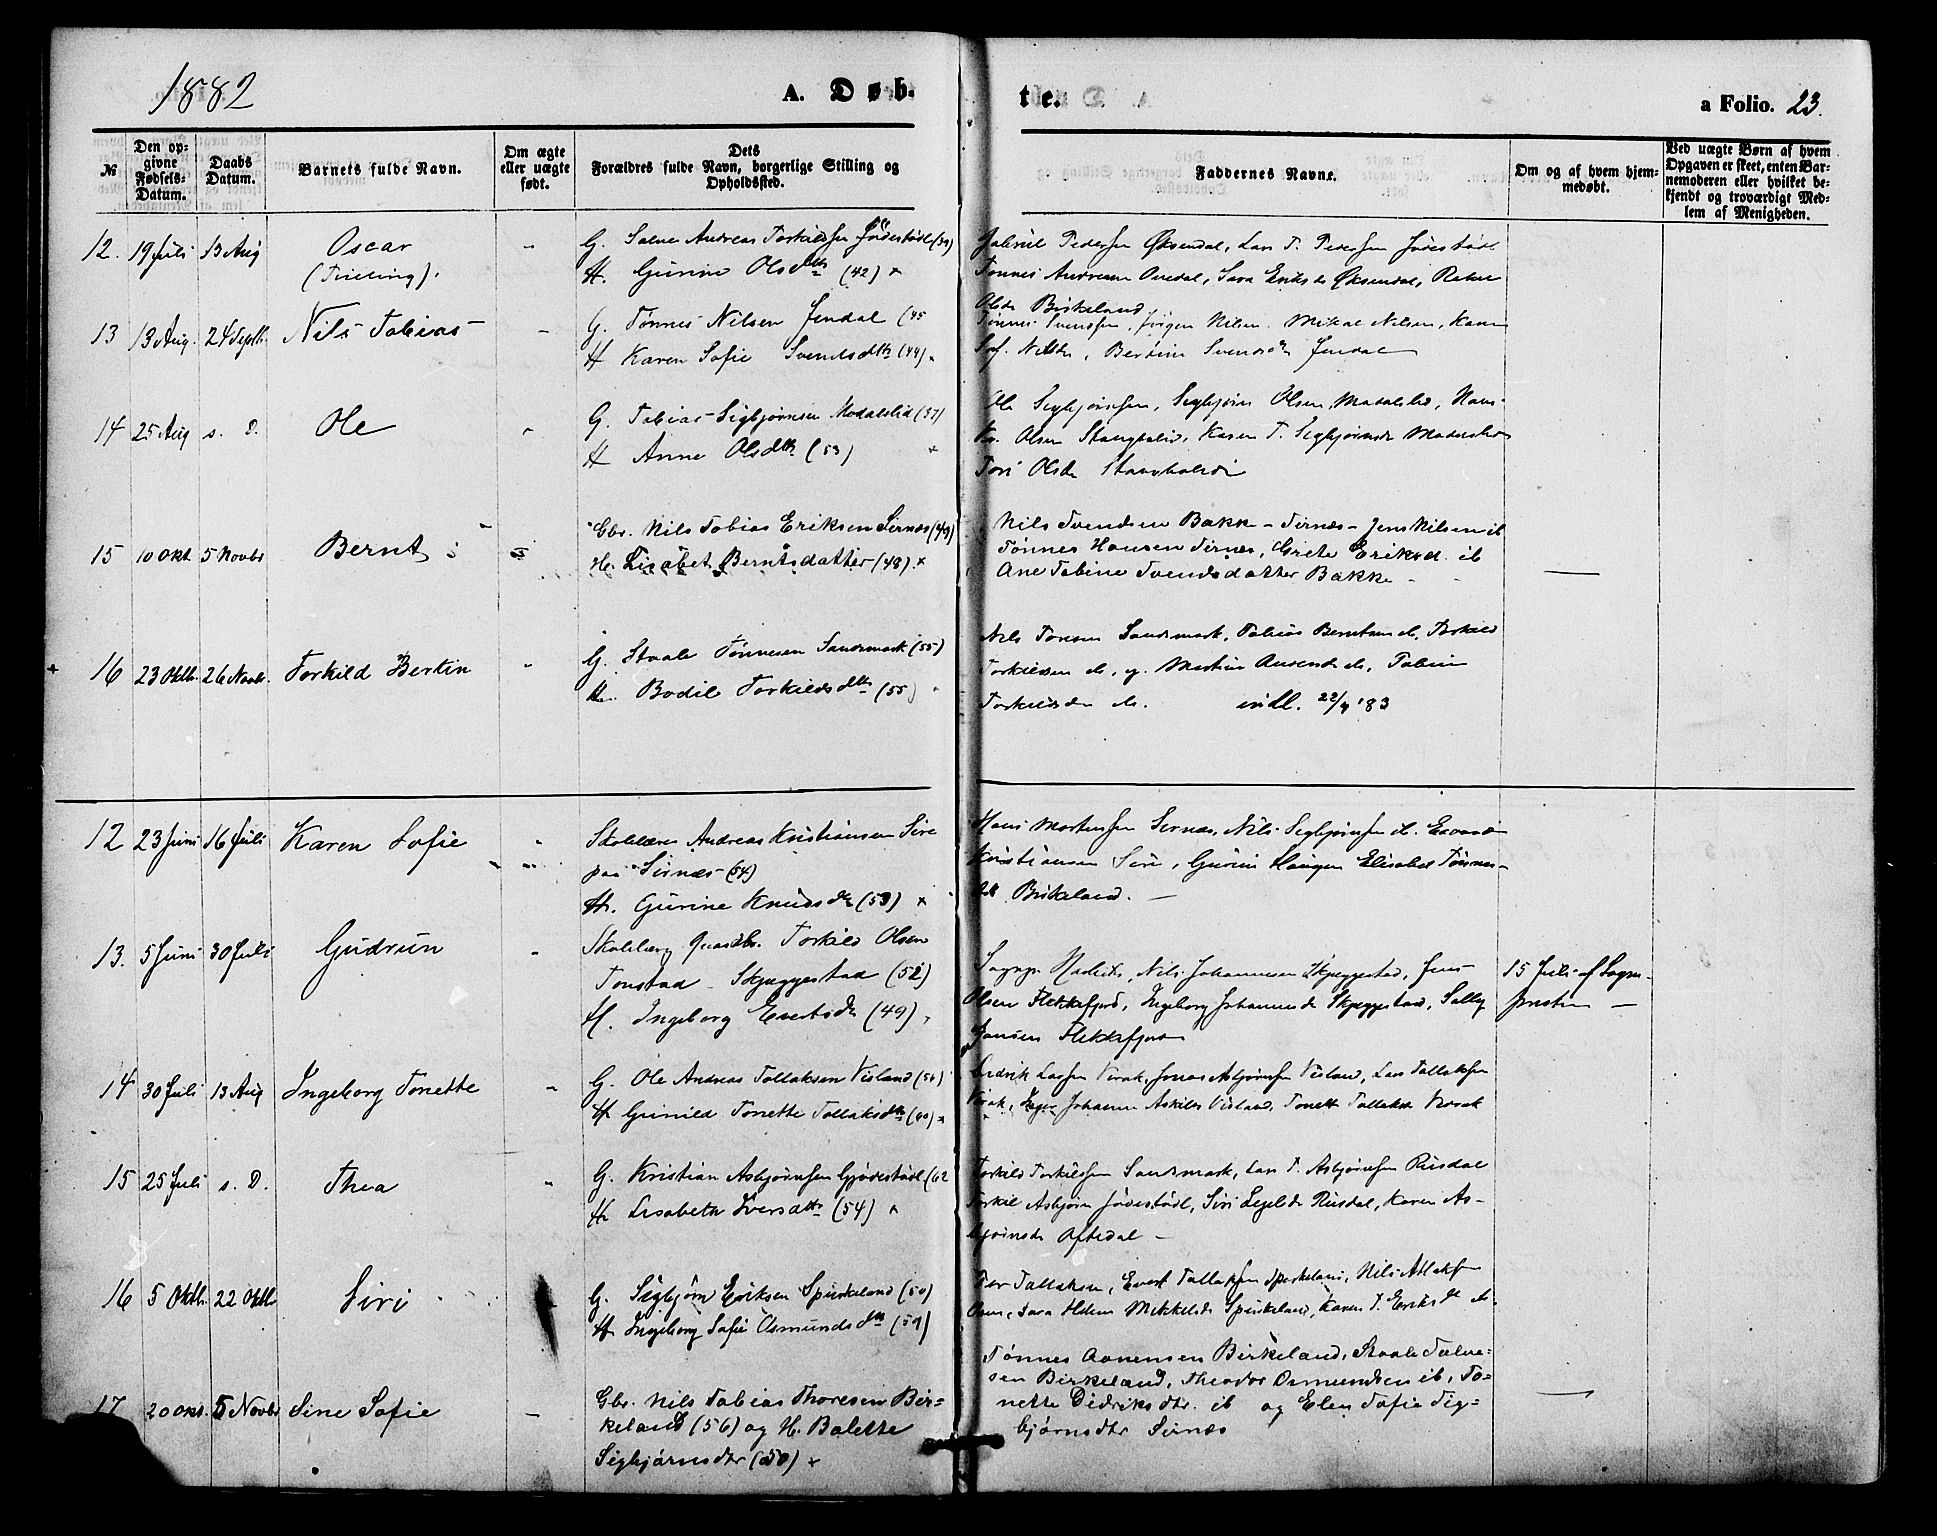 1882
A. Døb-
te.
a Folio. 23.
№
Den op-
givne
Fødsels-
Datum.
Daabs
Datum.
Barnets fulde Navn.
Om ægte
eller uægte
født.
Dets
Forældres fulde Navn, borgerlige Stilling og
Opholdssted.
Faddernes Navne.
Om og af hvem hjem-
medøbt.
Ved uægte Børn af hvem
Opgaven er skeet, enten Bar-
nemoderen eller hvilket be-
kjendt og troværdigt Med-
lem af Menigheden.
12. 19 Juli 13 Aug Oscar
(Trilling).
G. Salve Andreas Torkildsen Jødestødl (39)
H. Gurine Olsdtr (42) x
Gabriel Pedersen Øksendal, Lars T. Pedersen Jødestødl
Tønnes Andreassen Ovedal, Sara Eriksdr Øksendal,
Olsdr Birkeland
13 13 Aug. 24 Septb. Nils Tobias
G. Tønnes Nilsen Jendal (45
H Karen Sofie Svendsdtr (44) x
Tønnes Svendsen, Jörgen Nilsen. Mikal Nilsen, Karen
Sof. Nilsdr, Bertine Svendsdr Jendal
14 25 Aug s. D. Ole
G. Tobias Sigbjørnsen Modalslid (57)
H Anne Olsdtr (53) x
Ole Sigbjørnsen, Sigbjørn Olsen Modalslid, Hans
Kr. Olsen Stangbolid, Karen T. Sigbjørnsdr Modalslid
Tori Olsdr
15 10 Okt. 5 Novbr Bernt
Gbr. Nils Tobias Eriksen Sirnæs (49)
H. Lisabet Berntsdatter (48). x
Nils Svendsen Bakke - Sirnæs - Jens Nilsen ib
Tønnes Hansen Sirnæs, Grete Eriksd. ib
Ane Tobine Svendsdatter Bakke -
+ 16 23 Oktb. 26 Novbr. Torkild Bertin
G. Staale Tønnesen Sandsmark (55)
H. Bodil Torkildsdtr (55)
Nils Tønnesen Sandsmark, Tobias Berntsen ds, Torkild
Torkildsen ds, g. Martin ds, Tobine
Torkildsdr ds. indl. 22/4 '83
12 23 Juni 16 Juli Karen Sofie
Skolelærer Andreas Kristiansen Sire
paa Sirnæs (54)
H. Gurine Knudsdr (53) x
Hans Mortensen Sirnæs, Nils Sigbjørnsen ib. Edvard
Kristiansen Sire, Gurine Haugen Elisabet Tønnes-
dtr Birkeland. -
13. 5 Juni 30 Juli Gudrun
Skolelærer Torkild Olsen
Tonstad - Skjeggestad (52)
H. Ingeborg Evertsdr (49)
Sogspr. Nils Johannessen Skjeggestad, Jens
Olsen Flekkefjord, Ingeborg Johannesdr Skjeggestad, Sally
Jansen Flekkefjord
15 Juli af Sogne-
præsten -
14 30 Juli 13 Aug Ingeborg Tonette
G. Ole Andreas Tollaksen Visland (56)
H Gunild Tonette Tollaksdtr (60) x
Didrik Larsen Virak, Jonas Asbjørnsen Visland, Lars Tollaksen
Virak, Inger Johanne Askildsdr Visland, Tonette Tollaksdr Virak
15 25 Juli s. D. Thea
G. Kristian Asbjørnsen Gjødestødl (62
H. Lisabeth Iversdtr (54) x
Torkild Torkildsen Sandsmark, Lars T. Asbjørnsen Risdal
Torkil Asbjørn Jødestødl, Siri Risdal, Karen As-
bjørnsdr Oftedal -
16 5 Oktb. 22 Oktb Siri
G. Sigbjørn Eriksen Spirkeland (50)
H. Ingeborg Sofie Osmundsdtr (54)
Per Tollaksen, Evert Tollaksen Spirkeland, Nils Atlaksen
Osen, Sara Helene Mikkelsdr Spirkeland, Karen T. Eriksdr ds.
17 20 Okt. 5 Novbr Sine Sofie
Gbr. Nils Tobias Thoresen Bir-
keland (56) og H. Bolette
Sigbjørnsdtr (50) x
Tønnes Aanensen Birkeland, Staale Salve-
sen Birkeland, Theodor Osmundsen ib, To-
nette Didriksdtr. ib og Elen Sofie Sig-
bjørnsdtr Sirnæs